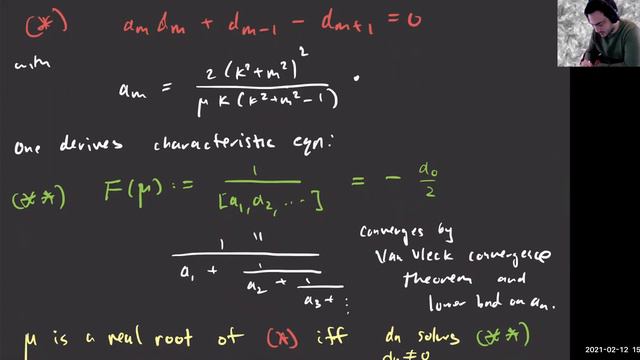 (*) a_m d_m + d_{m-1} - d_{m+1} = 0
with
a_m = 2(k²+m²)² / μ k (k²+m²-1) .
One derives characteristic eqn:
(**) F(μ) := 1 / [a_1, a_2, ...] = - a_0 / 2
"
1 / a_1 + 1 / a_2 + 1 / a_3 + ⋮
Converges by
Van Vleck convergence
theorem and
lower bnd on a_m.
μ is a real root of (*) iff dn solves (**)
dn ≠ 0
2021-02-12 15